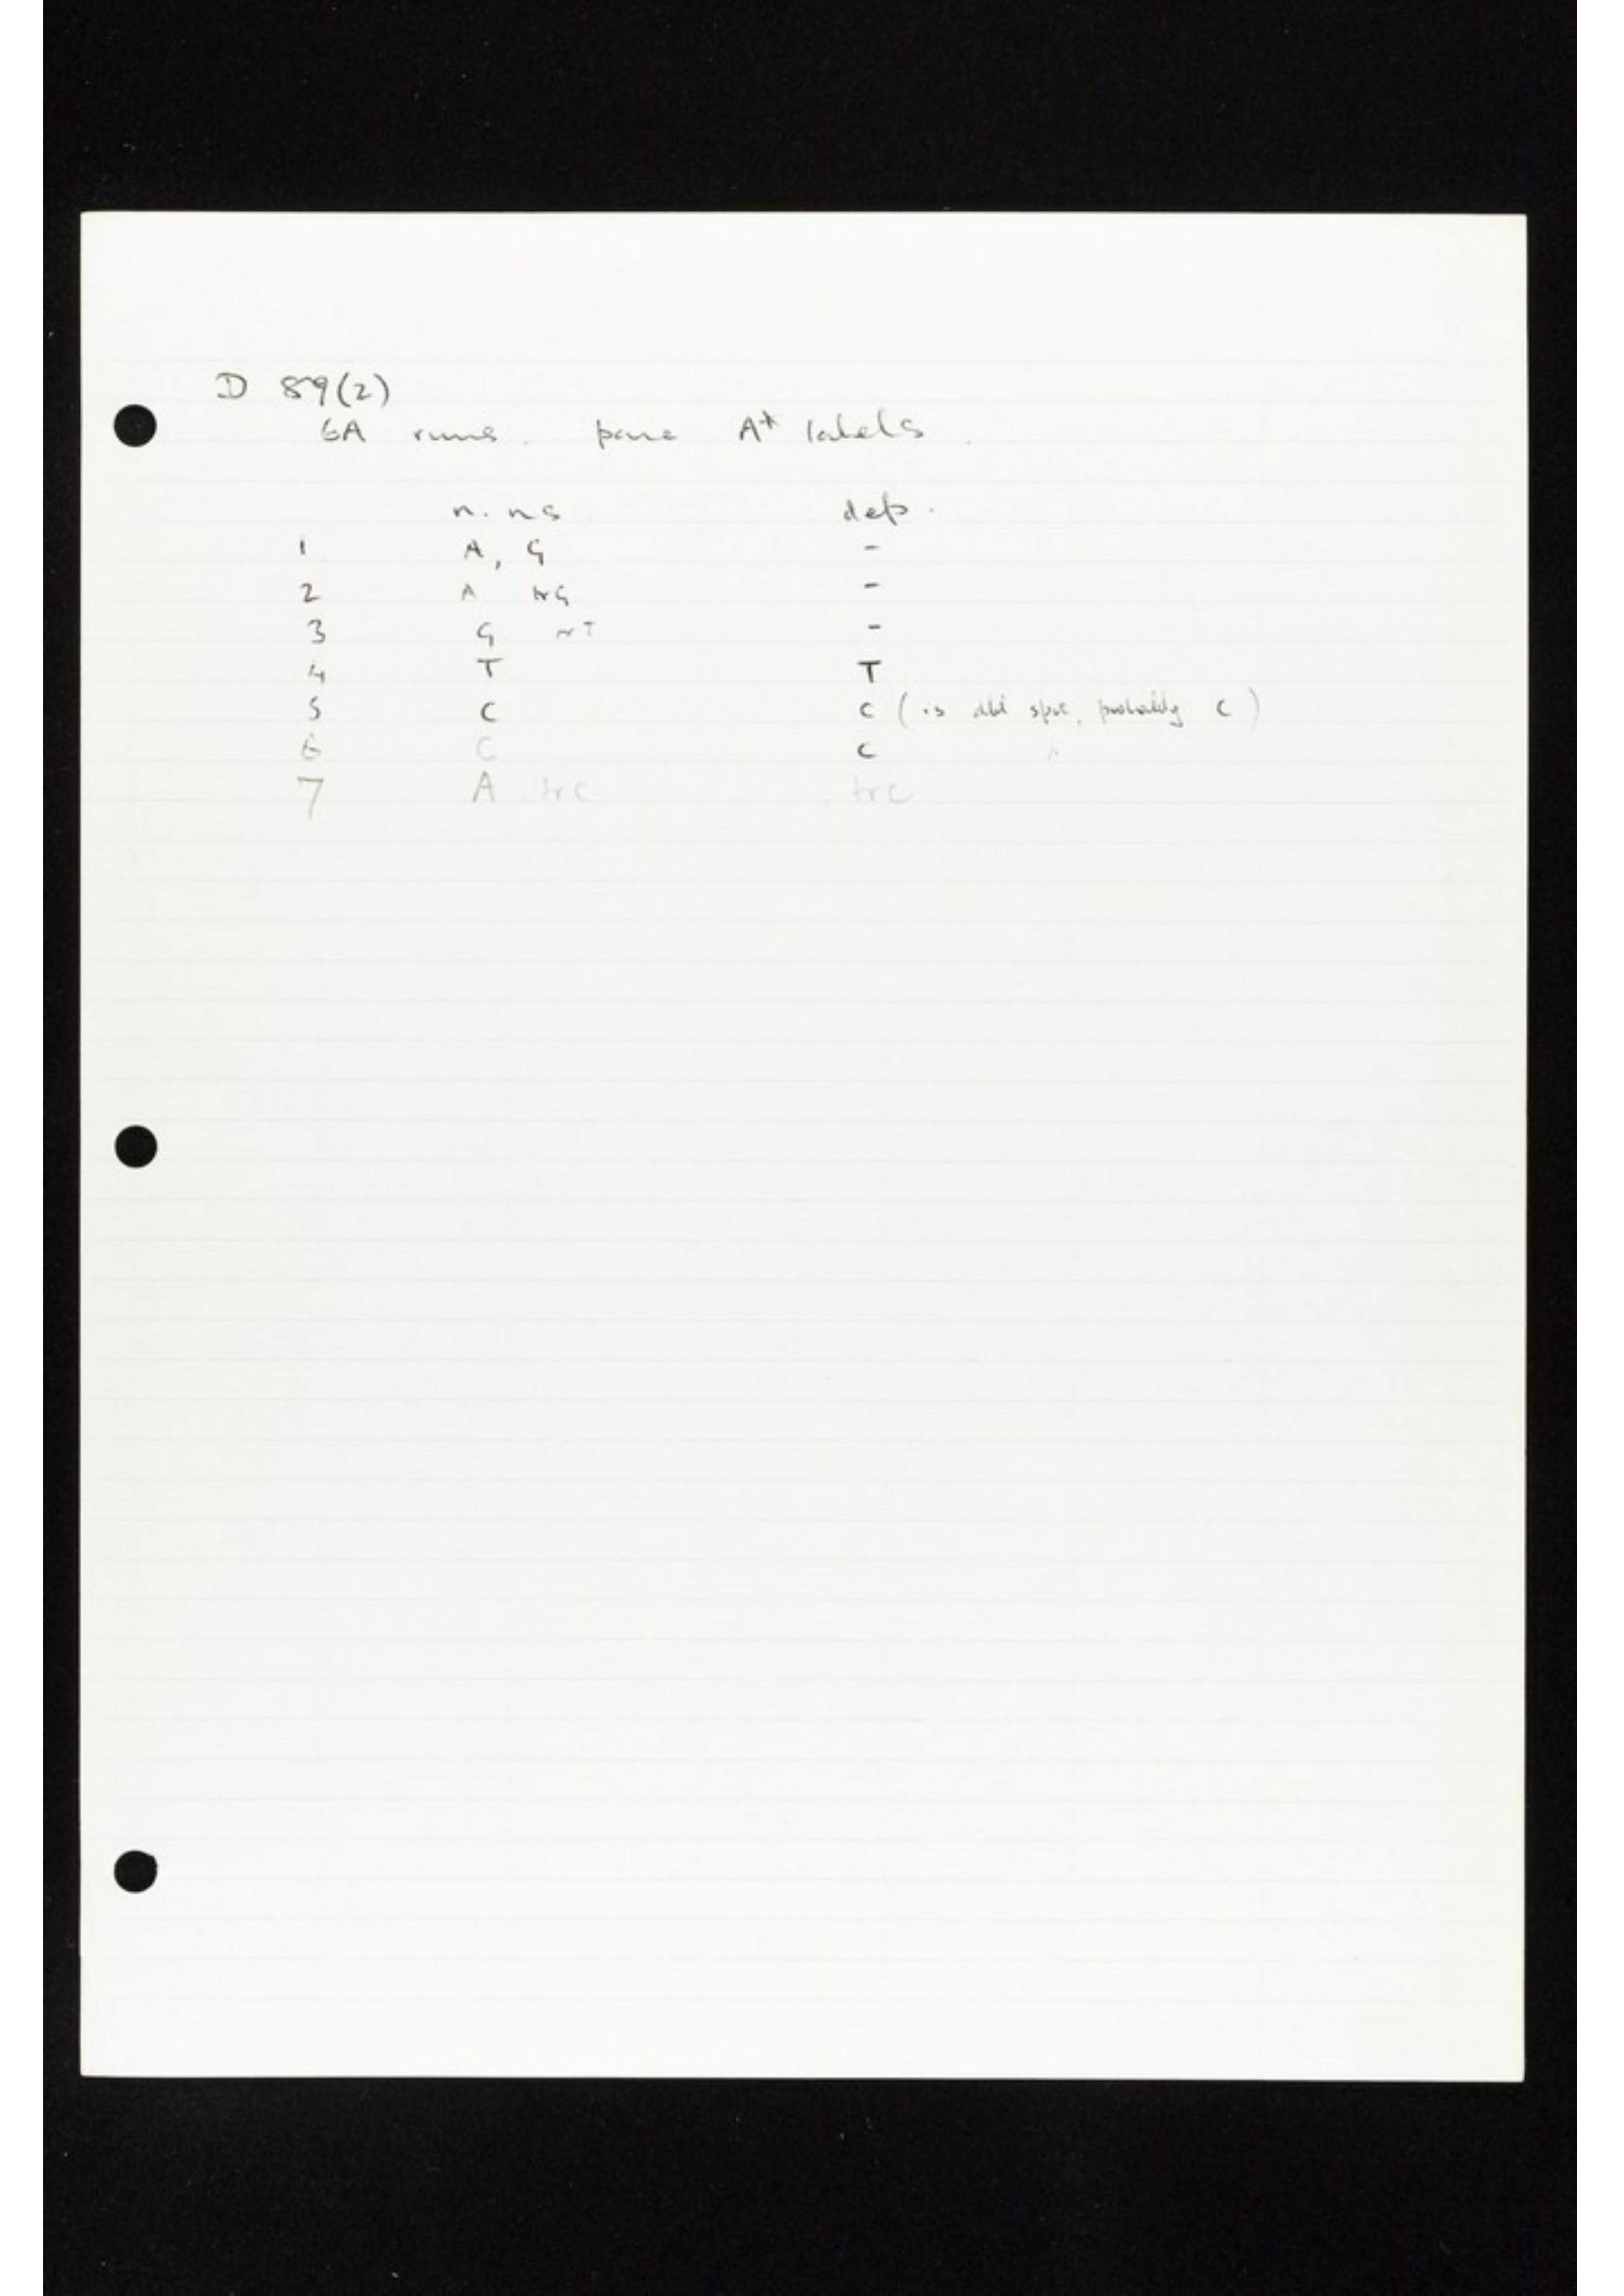 D 89(2)
GA runs. A* labels.
n.ns dep.
1 A, G -
2 A trG -
3 G T -
4 T T
5 C C (is spot, probably C)
6 C C "
7 A trC trC